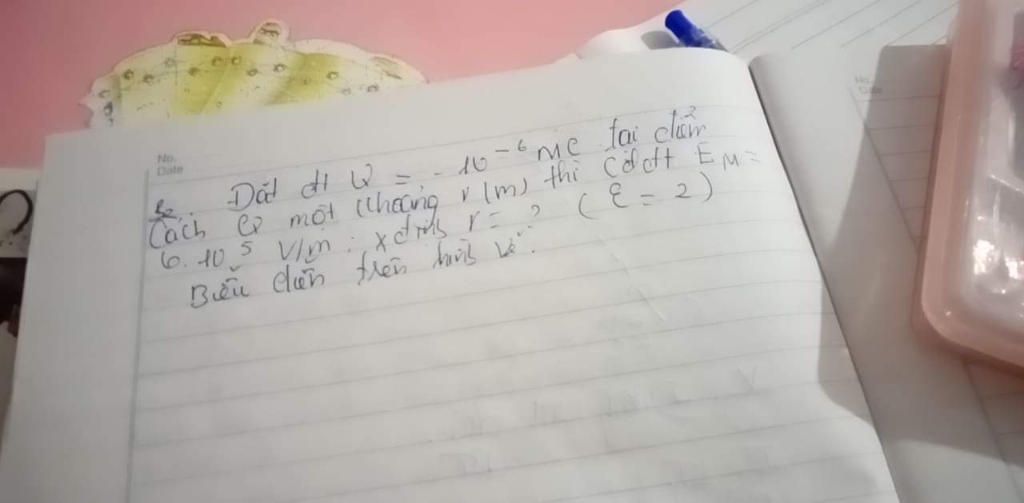 No.
Date
Đặt đt Q = -10⁻⁶ MC tại điểm
Cách Q một khoảng r (m) thì Cđđtt E M =
6. 10⁵ V/m. xđịnh r = ? ( ε = 2 )
Biểu diễn trên hình vẽ.
No.
Date